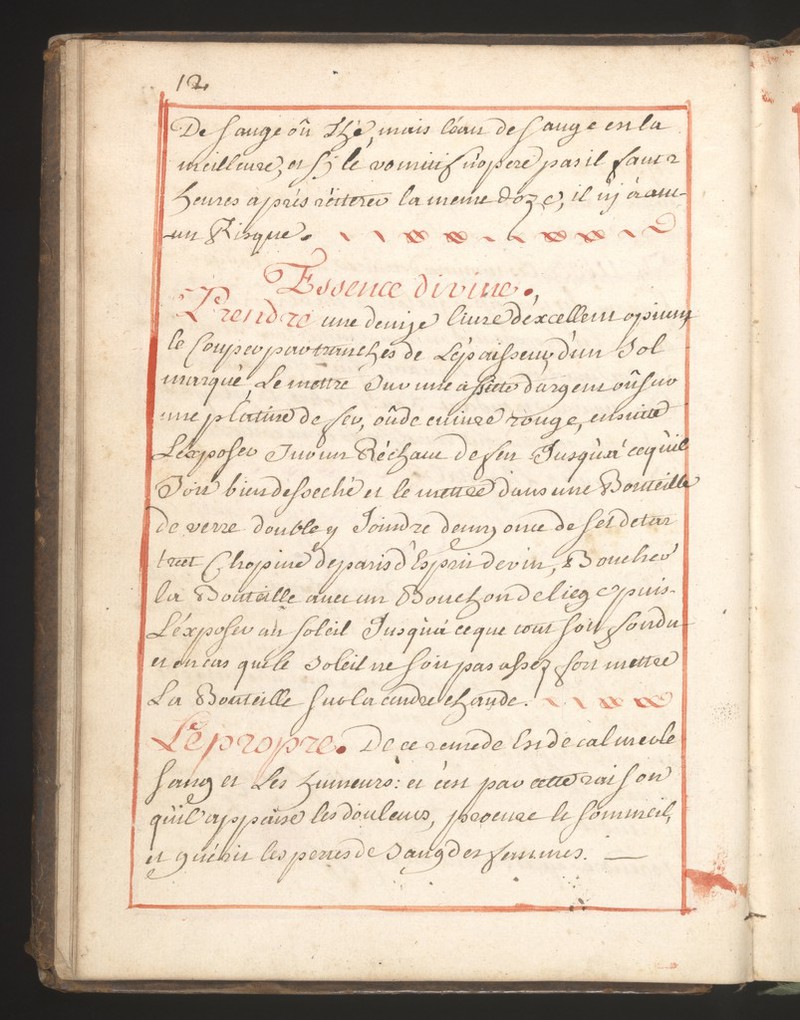 12
De Sauge oû Thé, mais L'éau de Sauge est la
meilleure, et Sy le vomitif n'opere pas il faut 2
heures aprés réiterer la meme doze, il n'y a au-
un Risque.
Essence divine.
Prendre une demye Livre d'éxcellent opium,
le Couper par tranches de L'épaisseur d'un Sol
marqué, Le mettre Sur une assiette d'argent oû sur
une platine de fer, oû de cuivre rouge, ensuite
L'éxposer Sur un Réchaut de feu Jusqu'a ce qu'il
Soit bien desseché et le mettre dans une Bouteille
de verre double y Joindre demy once de Sel de tar
tre et Chopine de paris d'Esprit de vin, Boucher
la Bouteille avec un Bouchon de liege puis
L'éxposer au Soleil Jusqu'a ce que tout soit fondu
et en cas que le Soleil ne soit pas assez fort mettre
La Bouteille Sur la cendre chaude.
Le propre. De ce remede Est de calmer le
Sang et Les humeurs: et c'est par cette raison
qu'il appaise les douleurs, procure le Sommeil,
et guérit les pertes de Sang des femmes.